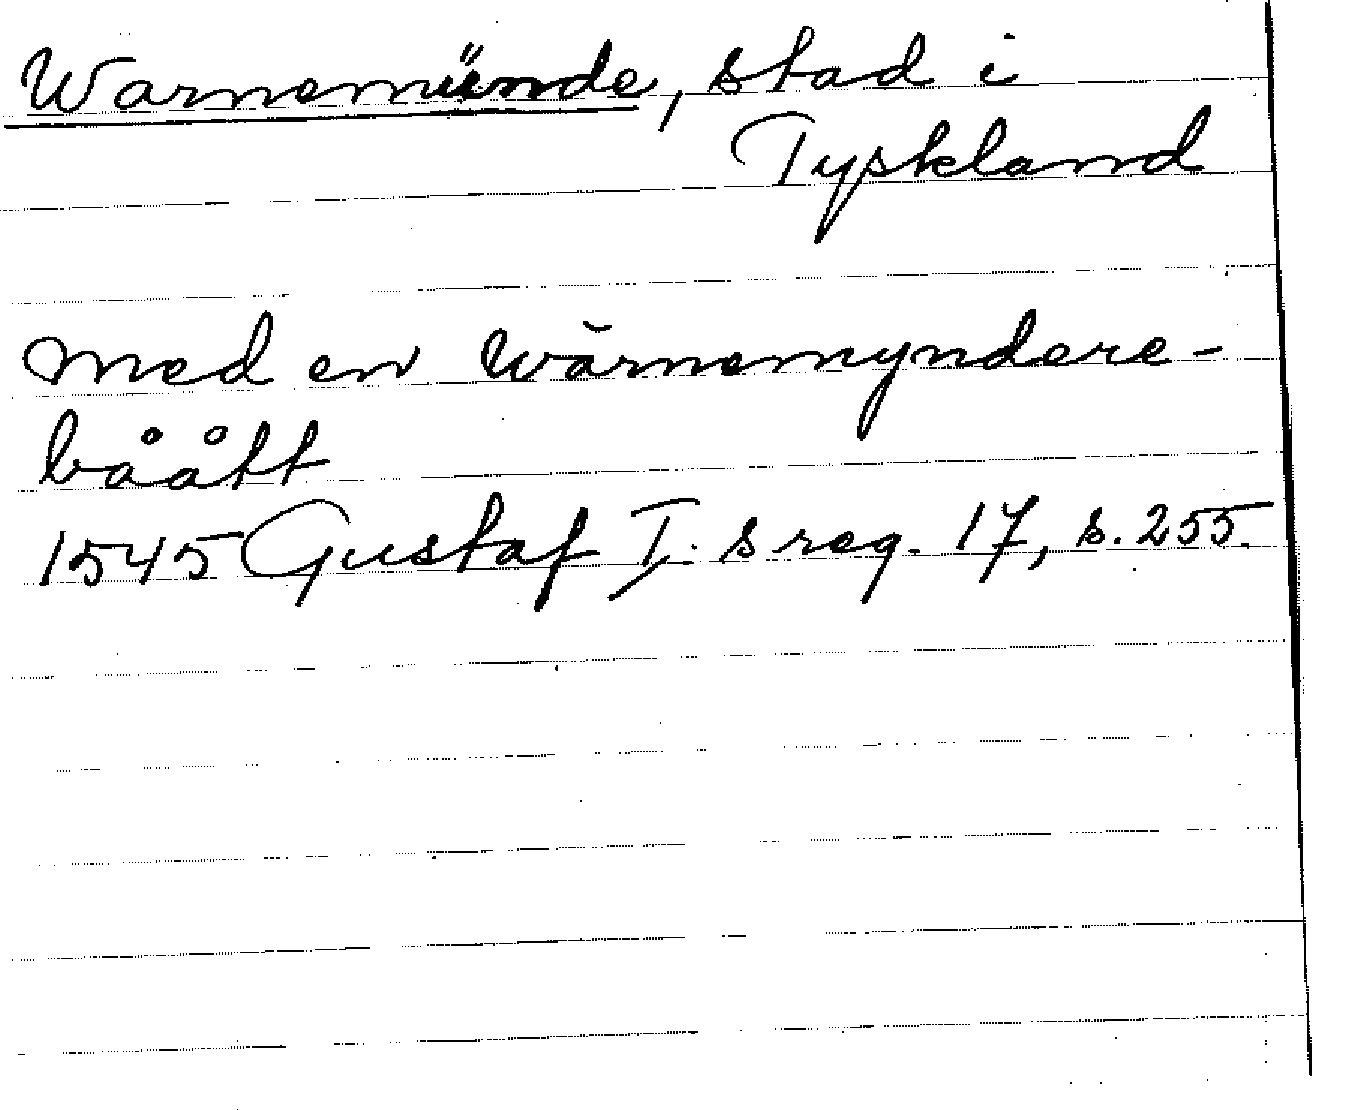 Warnemünde, stad i
Tyskland
med en wärnemyndere-
båått
1545 Gustaf I:s reg. 17, s. 255.